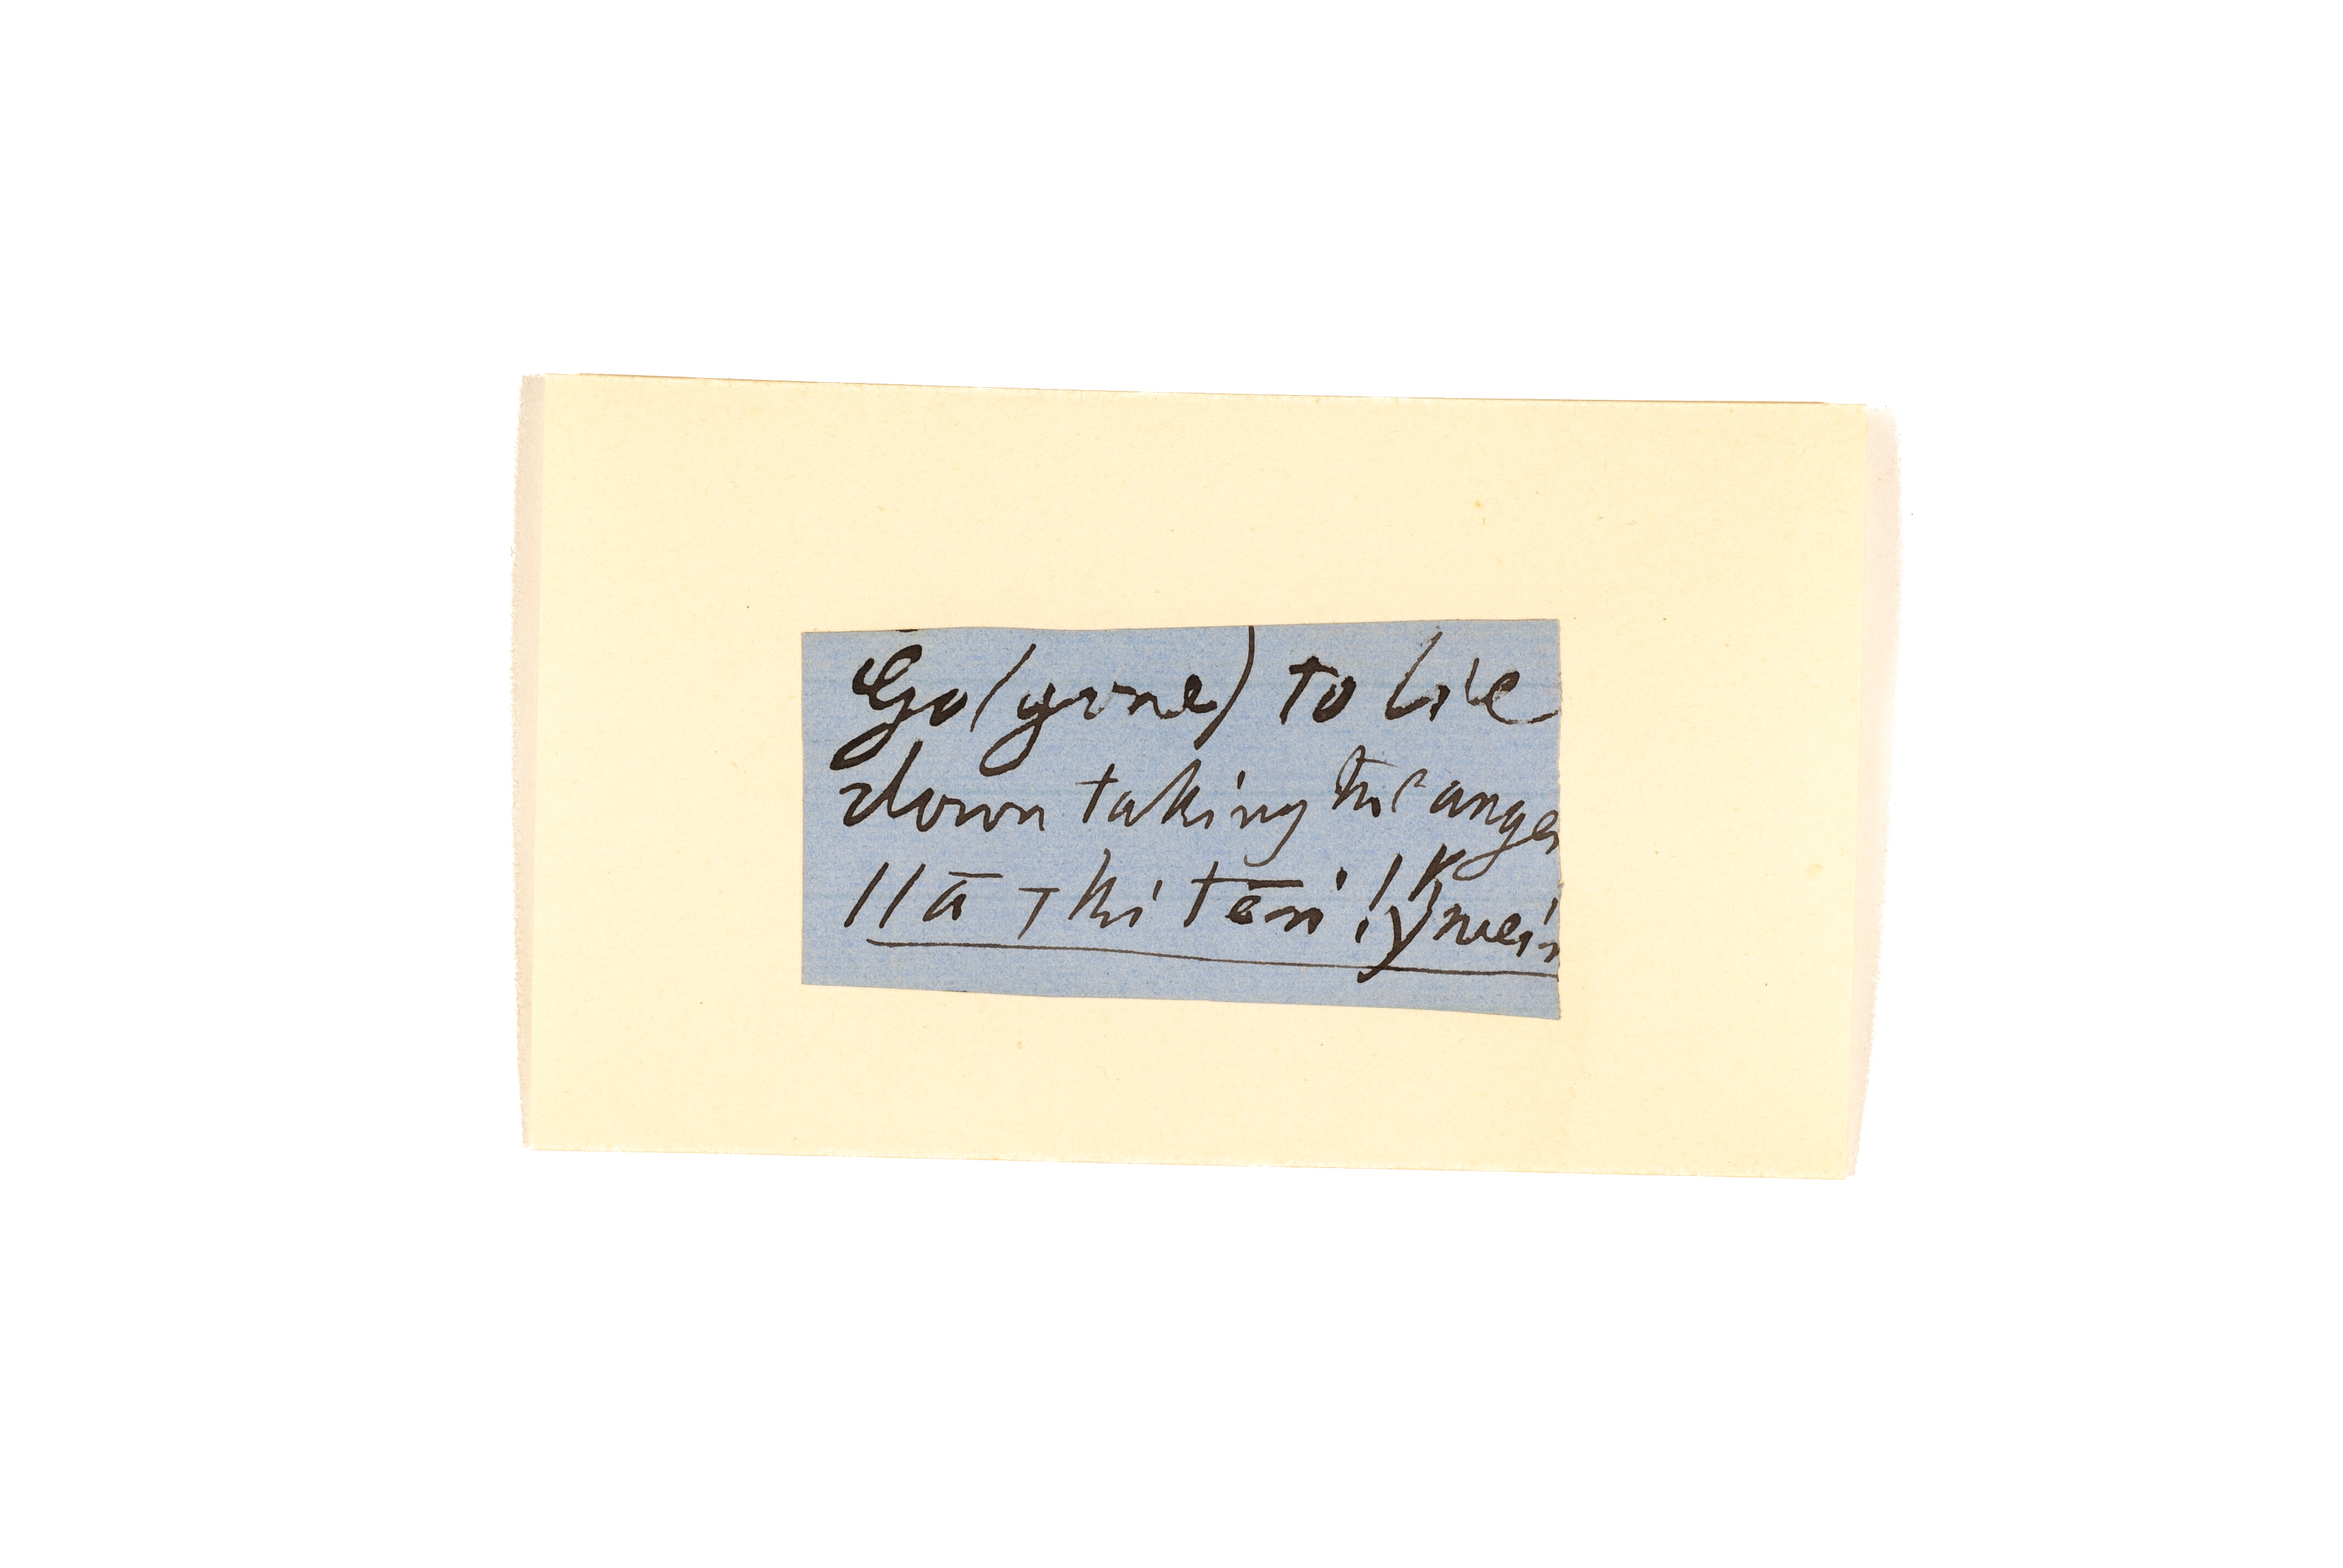 Go (gone) to lie
down taking the anger
//ā -/hi tēn !kwein